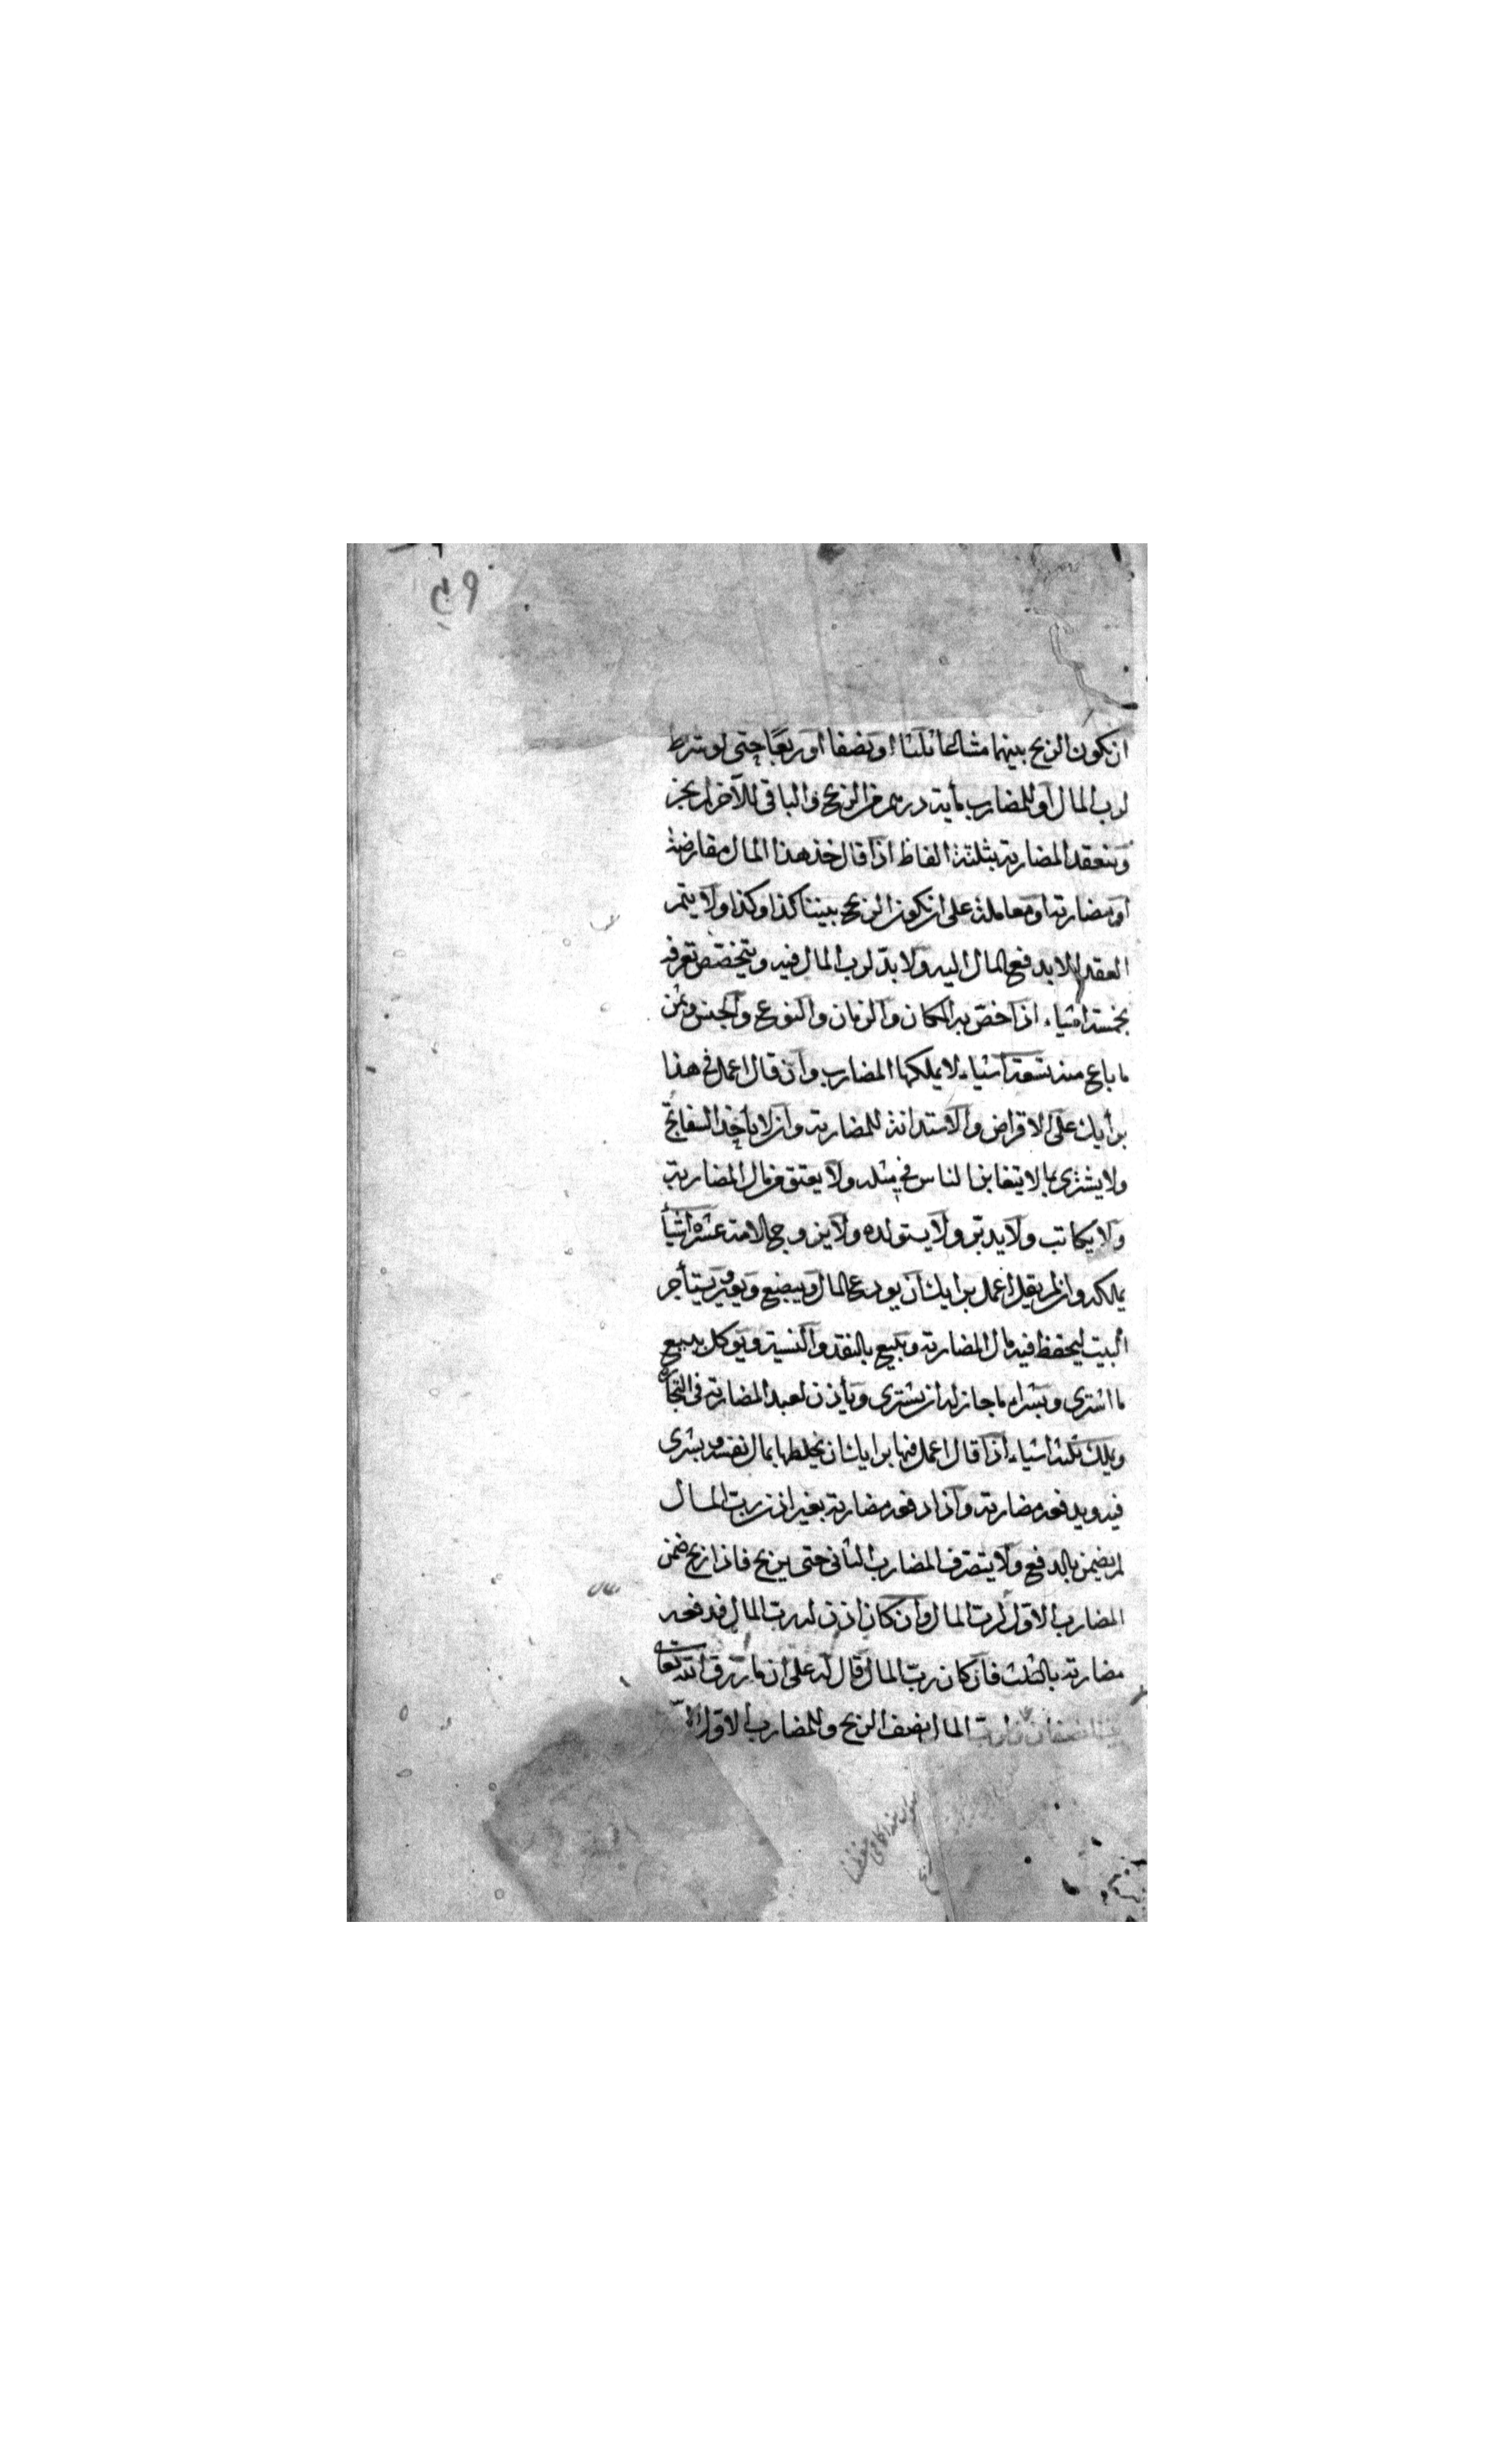 ان يكون الربح بينهما مشاعا ثلثا او نصفا او ربعا حتى لو شرط
لرب المال او للمضارب مأية درهم من الربح والباقي للآخر لم يجز
وتنعقد المضاربة بثلثة الفاظ اذا قال خذ هذا المال مقارضة
او مضاربة او معاملة على ان يكون الربح بيننا كذا وكذا ولا يتم
العقد الا بدفع المال اليه ولا يد لرب المال فيه ويتخصص تصرفه
بخمسة اشياء اذا خص به المكان والزمان والنوع والجنس ومن
ما باع منه تسعة اشياء لا يملكها المضارب وان قال اعمل في هذا
برأيك على الاقراض والاستدانة للمضاربة وان لا يأخذ السفاتج
ولا يشترى بما لا يتغابن الناس في مثله ولا يعتق من مال المضاربة
ولا يكاتب ولا يدبر ولا يستولده ولا يزوج الامة عشرة اشيأ
يملكه وان لم يقل اعمل برايك ان يودع المال ويبضع ويعير ويستأجر
البيت ليحفظ فيه مال المضاربة ويبيع بالنقد والنسية ويوكل ببيع
ما اشترى وبشراء ما جاز له ان يشترى ويأذن لعبد المضاربة في التجارة
ويملك ثلثة اشياء اذا قال اعمل فيها برايك ان يخلطها بمال نفسه ويشرى
فيه ويدفعه مضاربة واذا دفعه مضاربة بغير اذن رب المال
لم يضمن بالدفع ولا يتصرف المضارب الثاني حتى يربح فاذا ربح ضمن
المضارب الاول لرب المال وان كان اذن له رب المال فدفعه
مضاربة بالثلث فان كان رب المال قال له على ان ما رزق الله تعالى
المال نصف الربح وللمضارب الاول